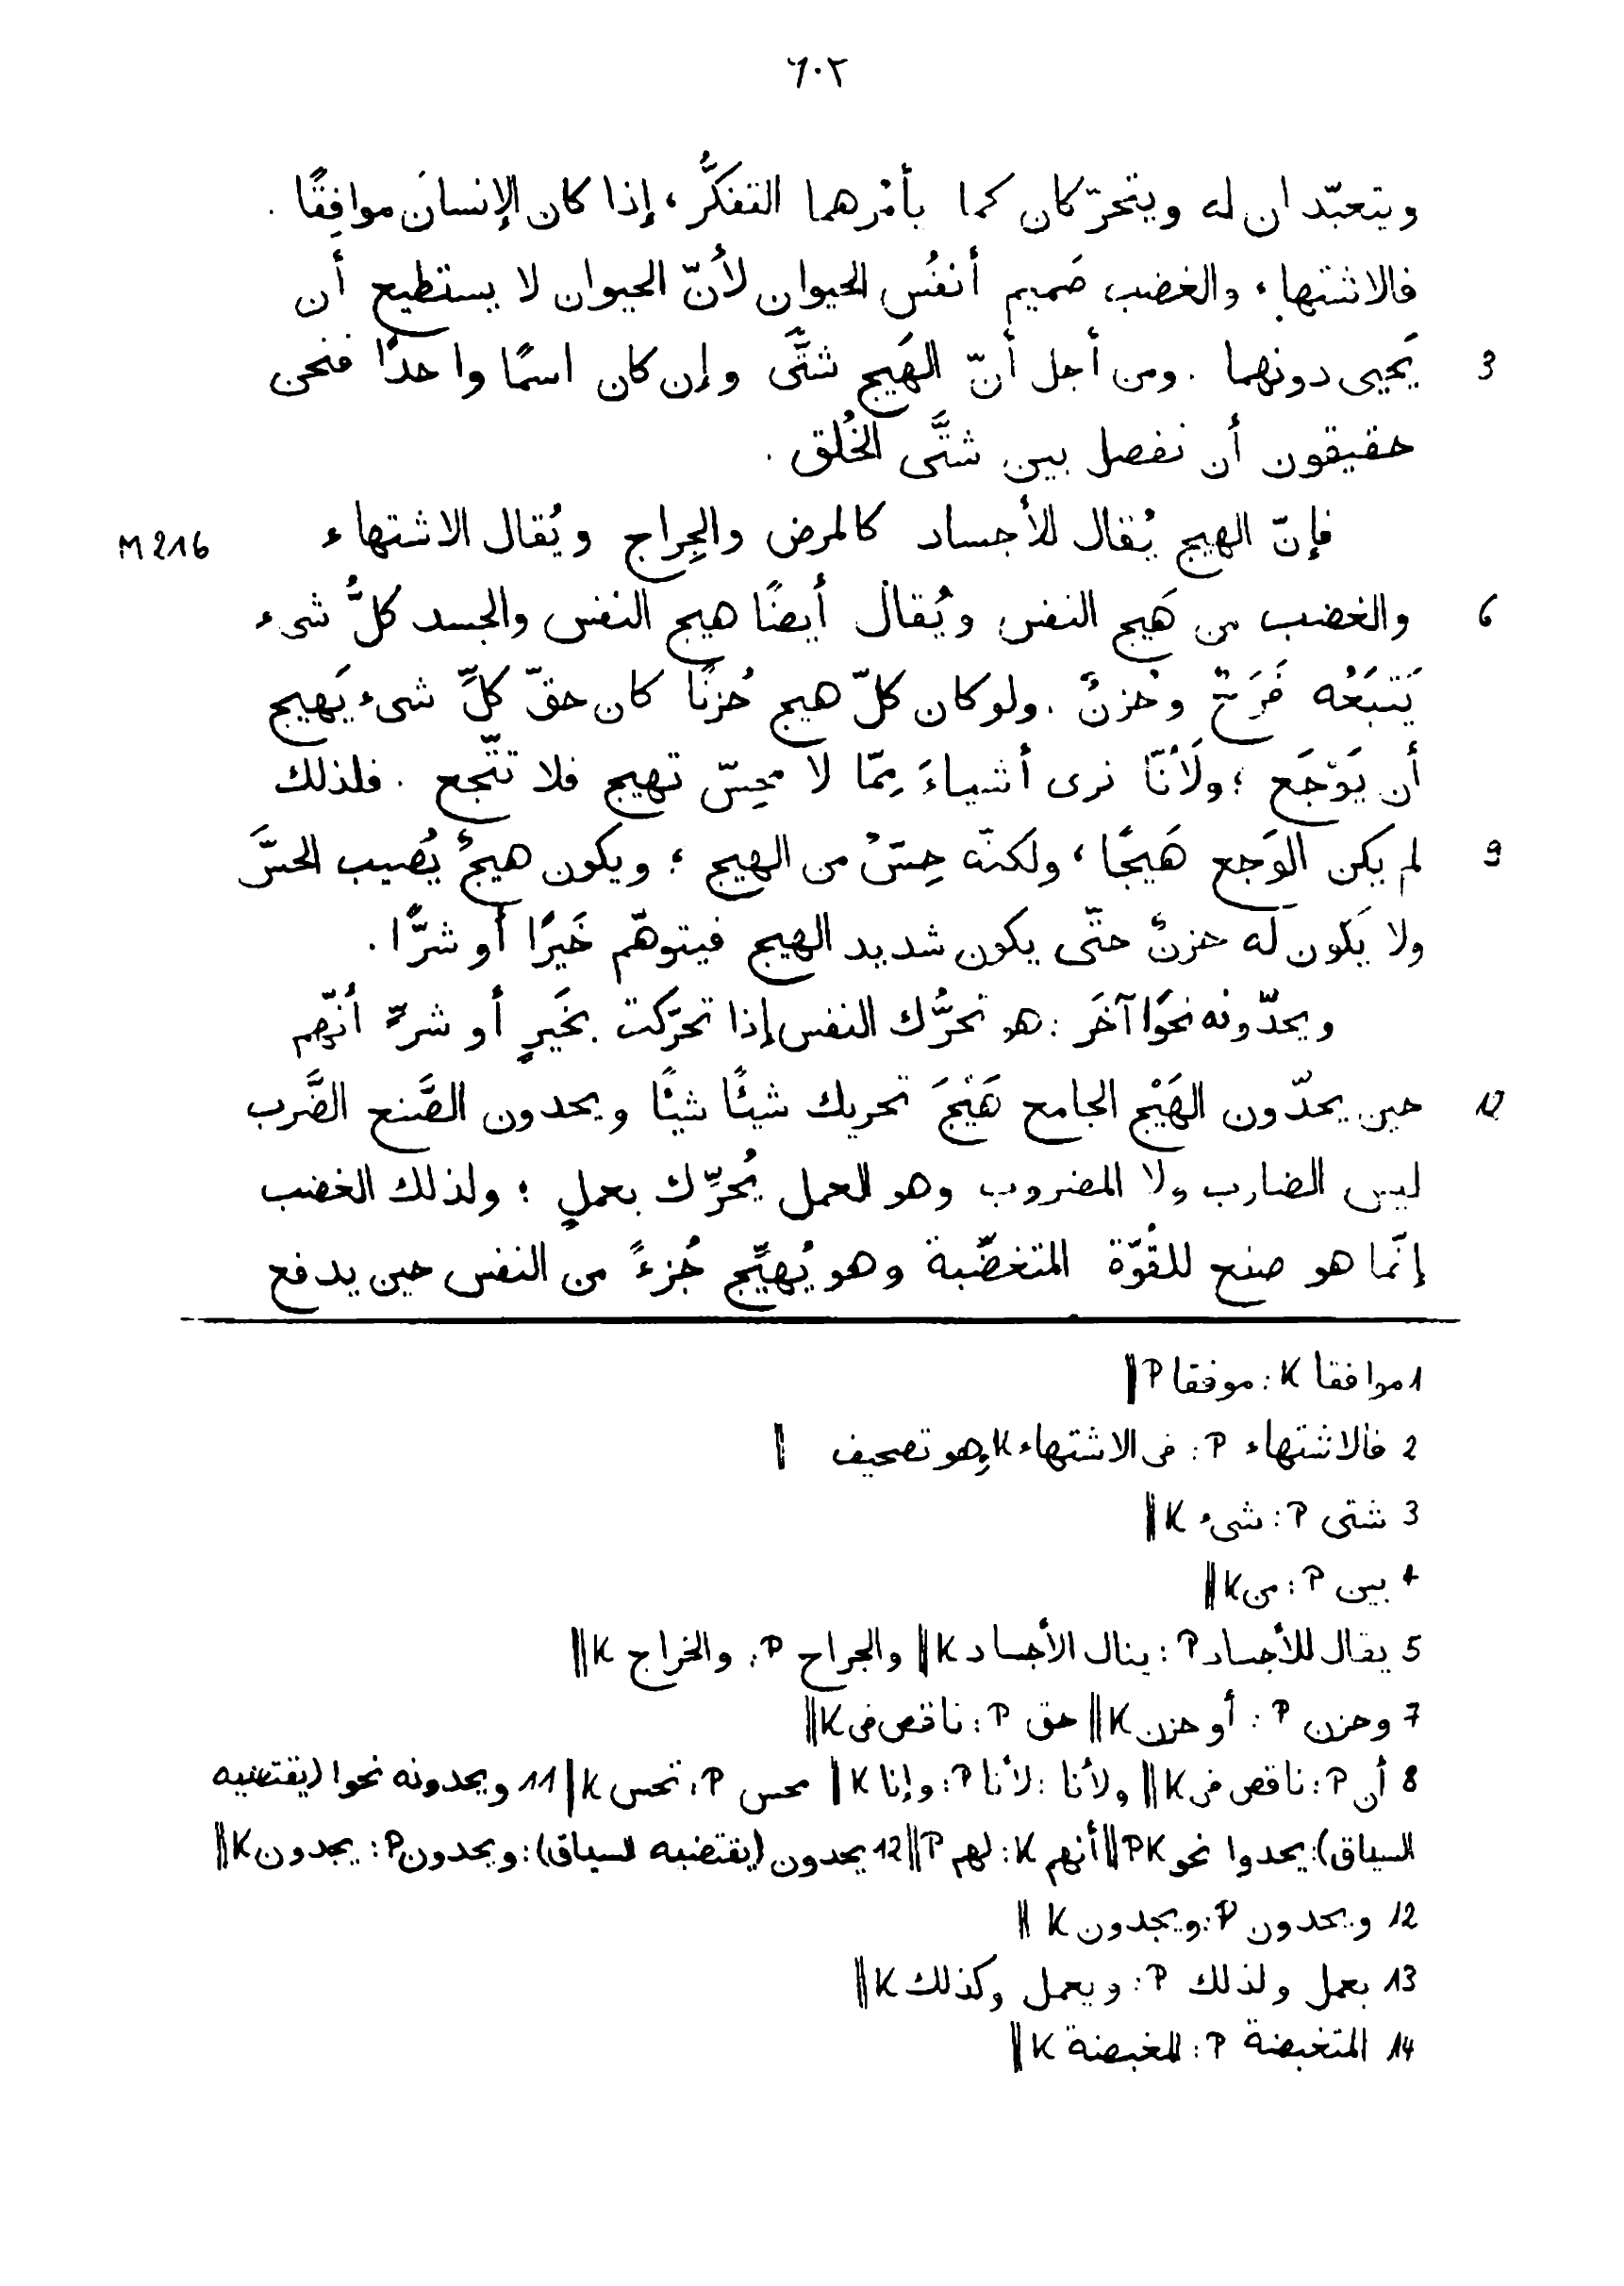 ٦٠٢
ويتعبّدان له ويتحرّكان كما يأمُرهما التفكُّر، إذا كان الإنسانَ موافِقًا .
فالاشتهاء والغضب صَميم أنفُس الحيوان لأنّ الحيوان لا يستطيع أن
3 يَحيى دونهما . ومن أجل أنّ الهَيج شتَّى وإن كان اسمًا واحدًا فنحن
حقيقون أن نفصل بين شتَّى الخُلق .
فإنّ الهيج يُقال للأجساد كالمرض والجِراح ويُقال الاشتهاء M 216
6 والغضب من هَيج النفس ويُقال أيضًا هيج النفس والجسد كلُّ شىء
يَتبَعُه فَرَحٌ وحُزنٌ . ولو كان كلّ هيج حُزنًا كان حقّ كلِّ شىء يَهيج
أن يَوْجَع ؛ ولَأنّا نرى أشياءَ مِمّا لا محِسّ تهيج فلا تتّجع . فلذلك
9 لم يكن الوَجع هَيجًا، ولكنّه حِسٌ من الهيج ؛ ويكون هيجٌ يُصيب الحسَّ
ولا يَكون له حزنٌ حتّى يكون شديد الهيج فيتوهّم خَيرًا أو شرًّا .
ويحدّونه نحوًا آخَر : هو تحرُّك النفس إذا تحرّكت بخَيرٍ أو شرٍّ أنّهم
12 حين يحدّون الهَيْج الجامع هَيْجَ تحريك شيئًا شيئًا ويحدون الصَّنع الضَّرب
ليس الضارب ولا المضروب وهو العمل يُحرِّك بعملٍ ؛ ولذلك الغضب
إنّما هو صنع للقُوّة المتغضّبة وهو يُهيِّج جُزءً من النفس حين يدفع
1 موافقا K : موفقا P ||
2 فالاشتهاء P : فى الاشتهاء K وهو تصحيف ||
3 شتى P : شىء K ||
4 بين P : من K ||
5 يقال للأجساد P : ينال الأجساد K || والجراح P : والخراج K ||
7 وحزن P : أو حزن K || حق P : ناقص فى K ||
8 أن P : ناقص فى K || ولأنا : لأنا P : وإنا K || محس P : تحس K || 11 ويحدونه نحوا (يقتضيه
السياق) : يحدوا نحو PK || أنهم K : لهم P || 12 يحدون (يقتضيه السياق) : ويحدون P : يجدون K ||
12 ويحدون P : ويجدون K ||
13 بعمل ولذلك P : ويعمل وكذلك K ||
14 المتغبضة P : المغبضة K ||